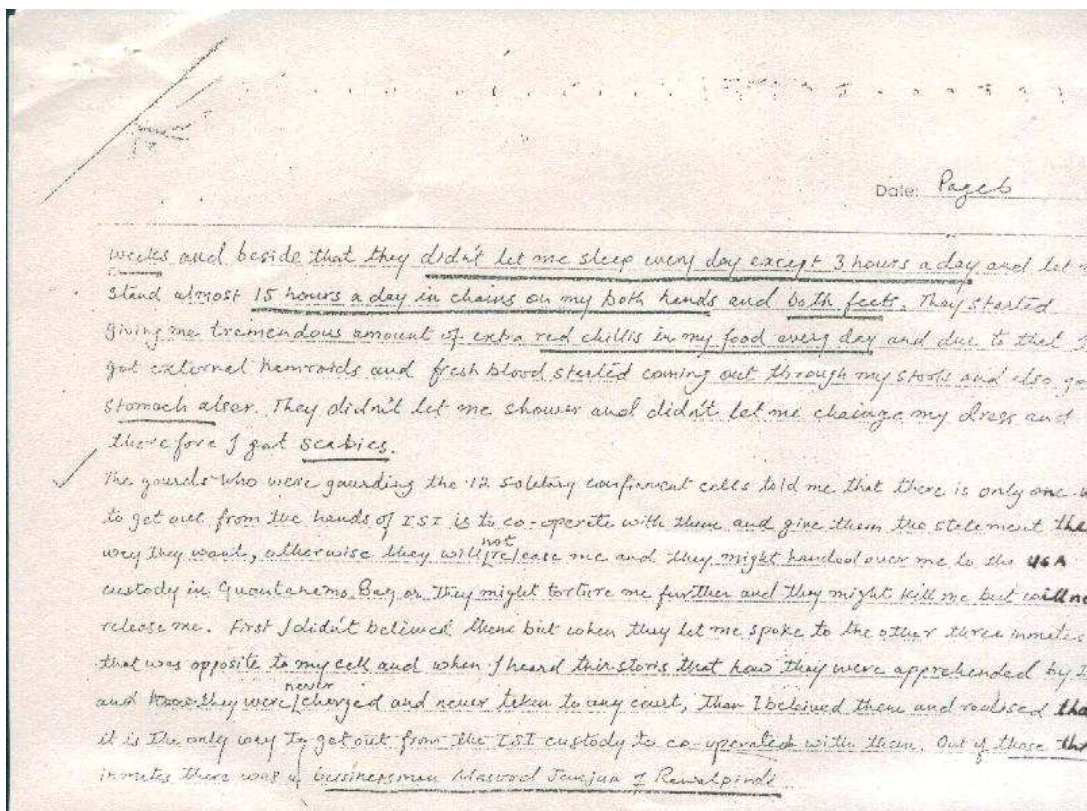 Date: Page 6
weeks and beside that they didn't let me sleep every day except 3 hours a day and let
stand almost 15 hours a day in chains on my both hands and both feets. They started
giving me tremendous amount of extra red chillis in my food every day and due to that I
got external hemroids and fresh blood started coming out through my stools and also
stomach alser. They didn't let me shower and didn't let me chainge my dress and
therefore I got scabies.
The gaurds who were gaurding the 12 soletary confirment cells told me that there is only one
to get out from the hands of ISI is to co-operate with them and give them the statement the
way they want, otherwise they will not release me and they might handed over me to the USA
custody in Guantanemo Bay or They might torture me further and they might kill me but will
release me. First I didn't belived them but when they let me spoke to the other three inmates
that was opposite to my cell and when I heard their storis that how they were apprehended by
and they were never charged and never taken to any court, then I belived them and realised
it is the only way to get out from the ISI custody to co-operate with them. Out of those
inmates there was a bussinessman Masood Janjua of Rawalpindi